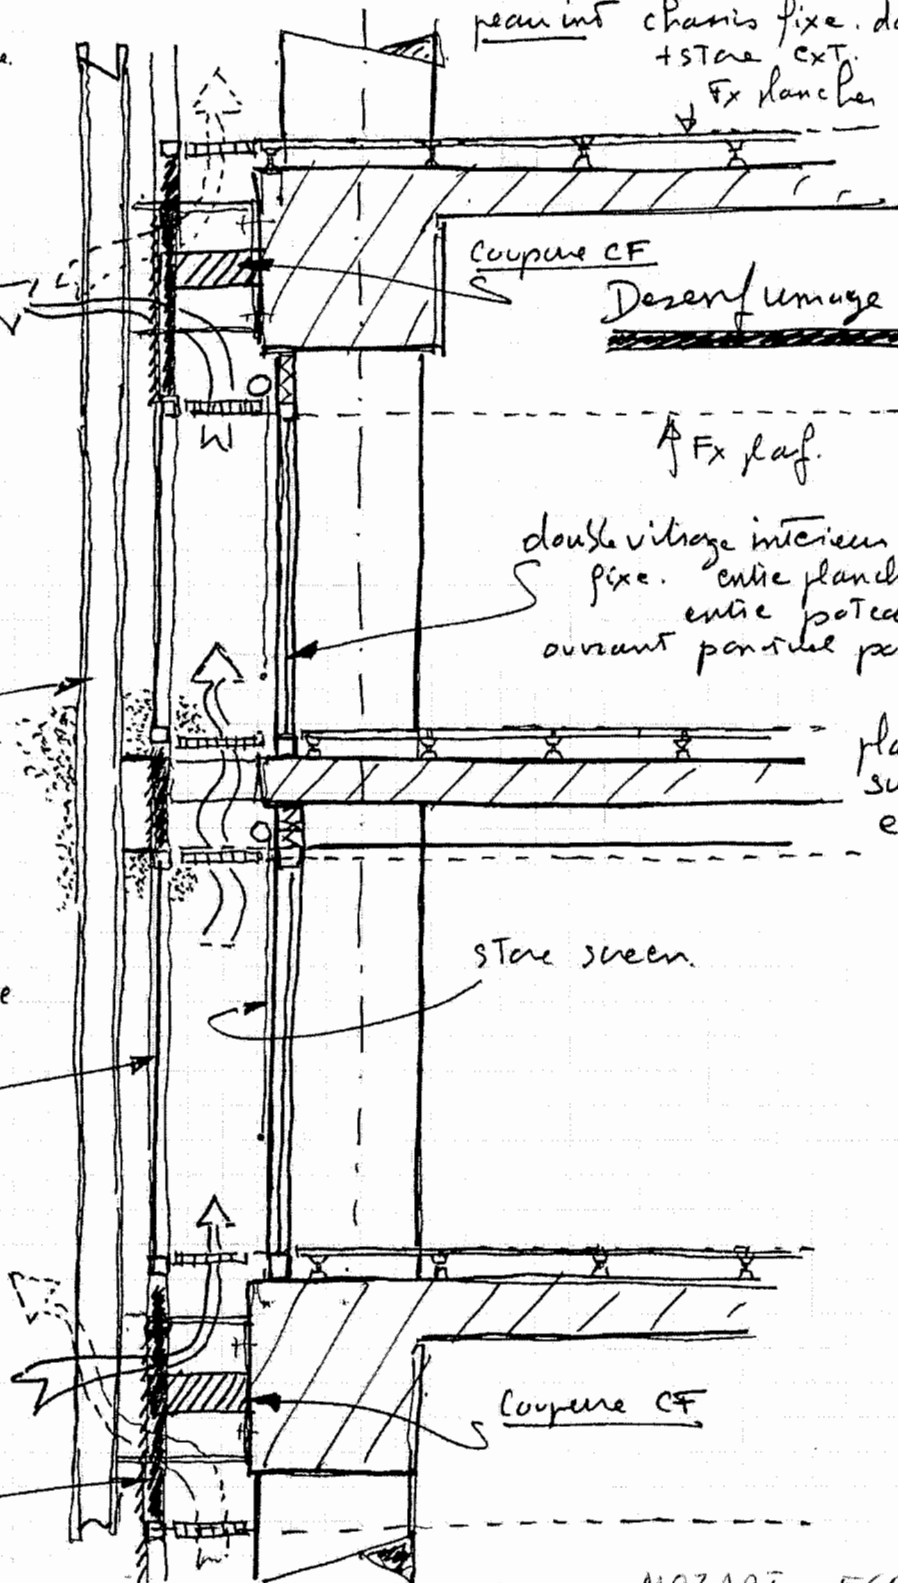 peau int chassis fixe. do
e.
+ store ext.
Fx plancher
Coupure CF
Desenfumage
Fx plaf.
double vitrage intérieur
fixe. entre planch
entre potea
ouvrant ponctuel pa
pla
su
e
store screen.
e
Coupure CF
MOZART